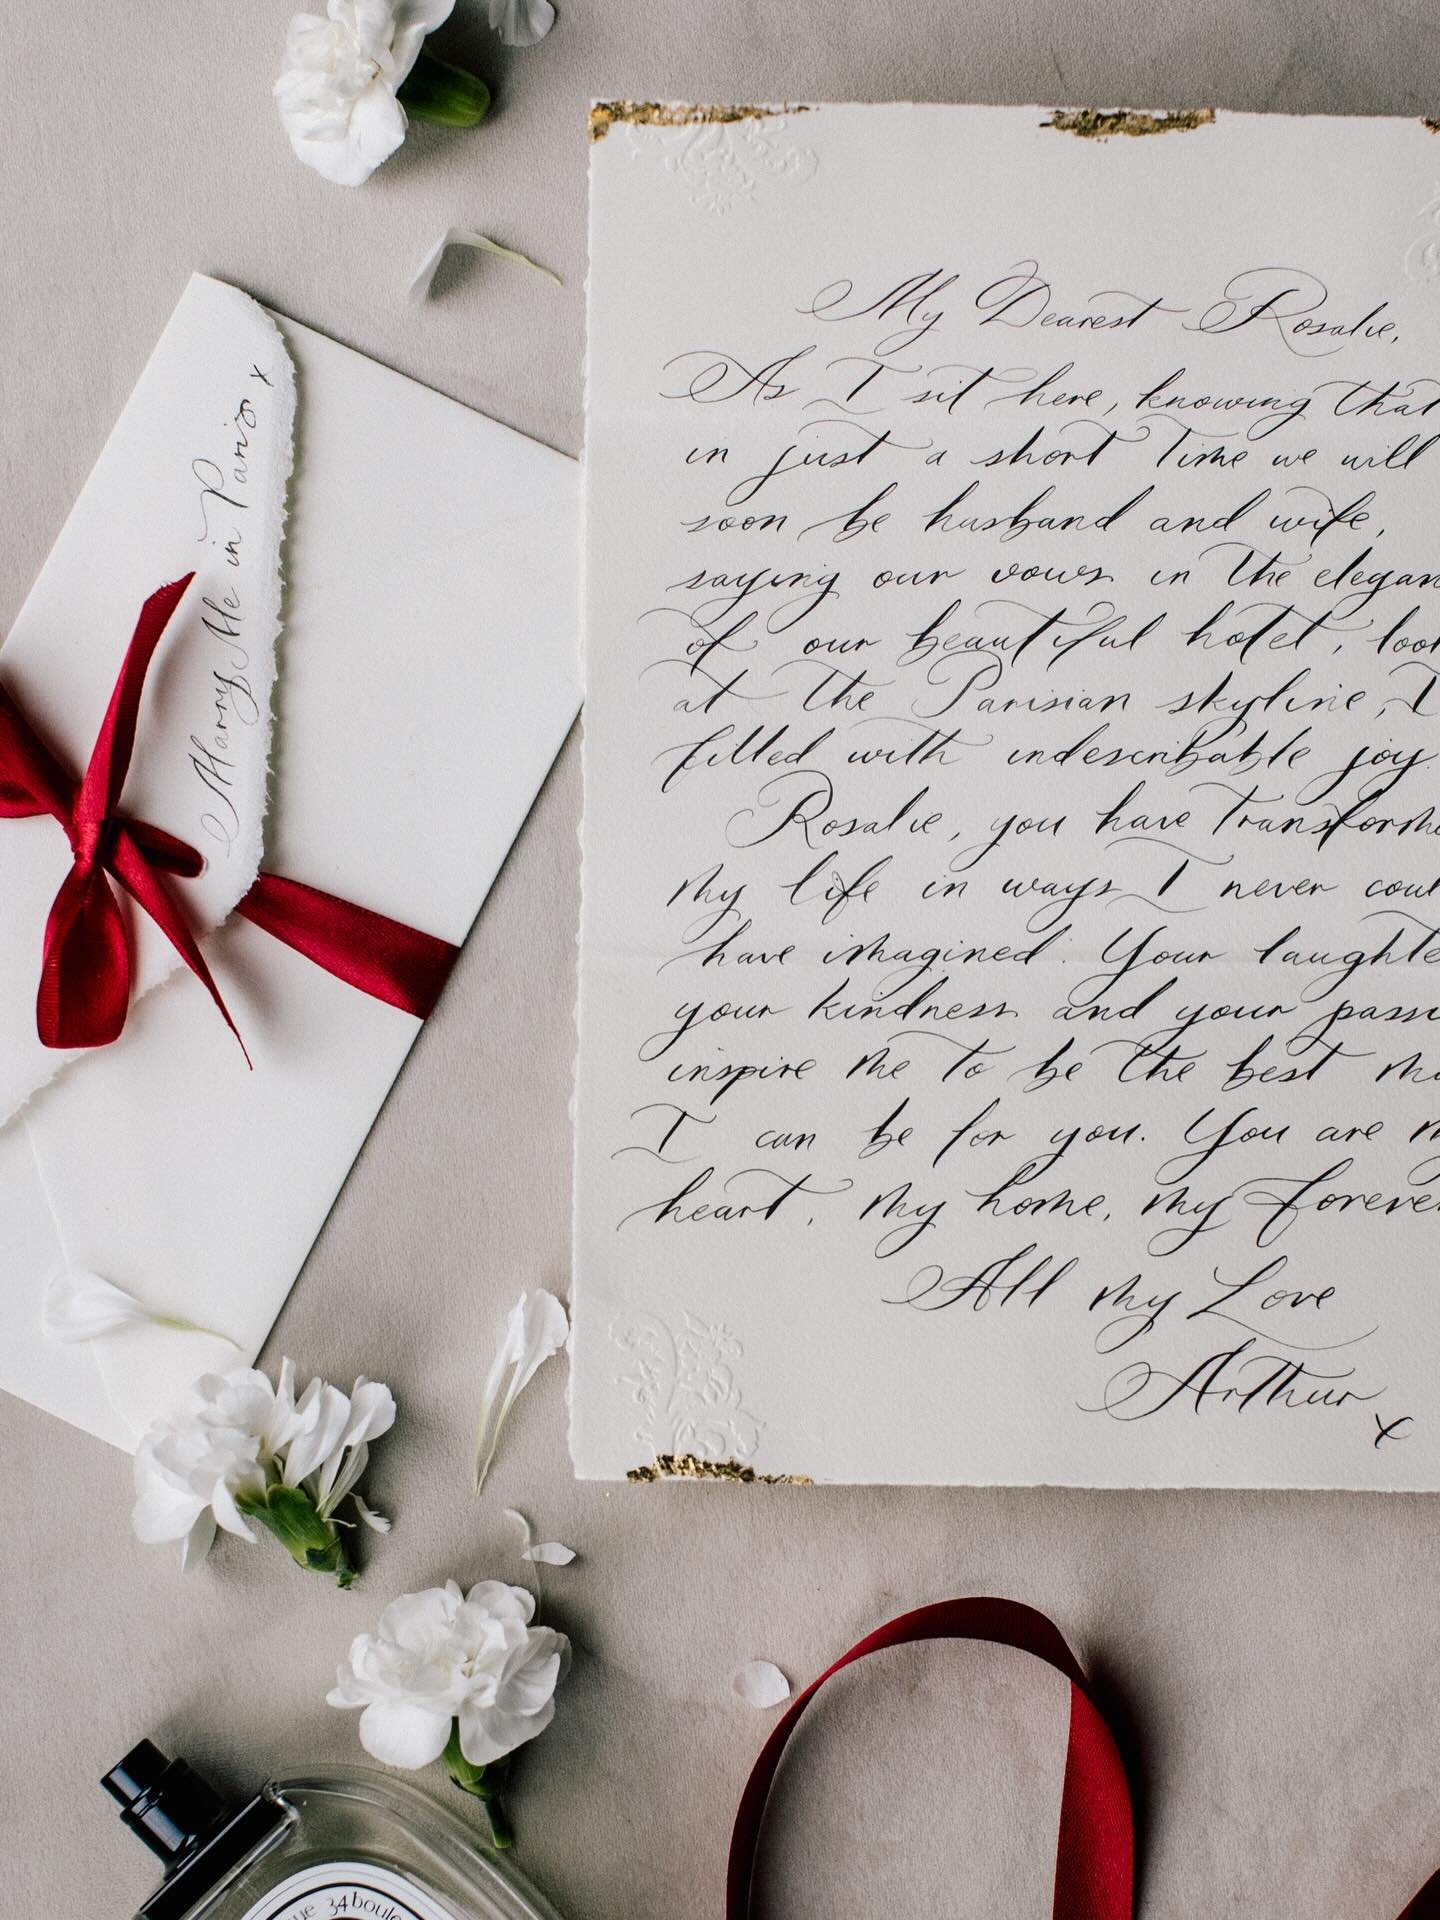 Marry Me in Paris x
My Dearest Rosalie,
As I sit here, knowing that
in just a short time we will
soon be husband and wife,
saying our vows in the elegan
of our beautiful hotel, loo
at the Parisian skyline, I
filled with indescribable joy.
Rosalie, you have transforme
my life in ways I never coul
have imagined. Your laughte
your kindness and your passi
inspire me to be the best m
I can be for you. You are m
heart, my home, my forever
All my Love
Arthur
x
34 boule